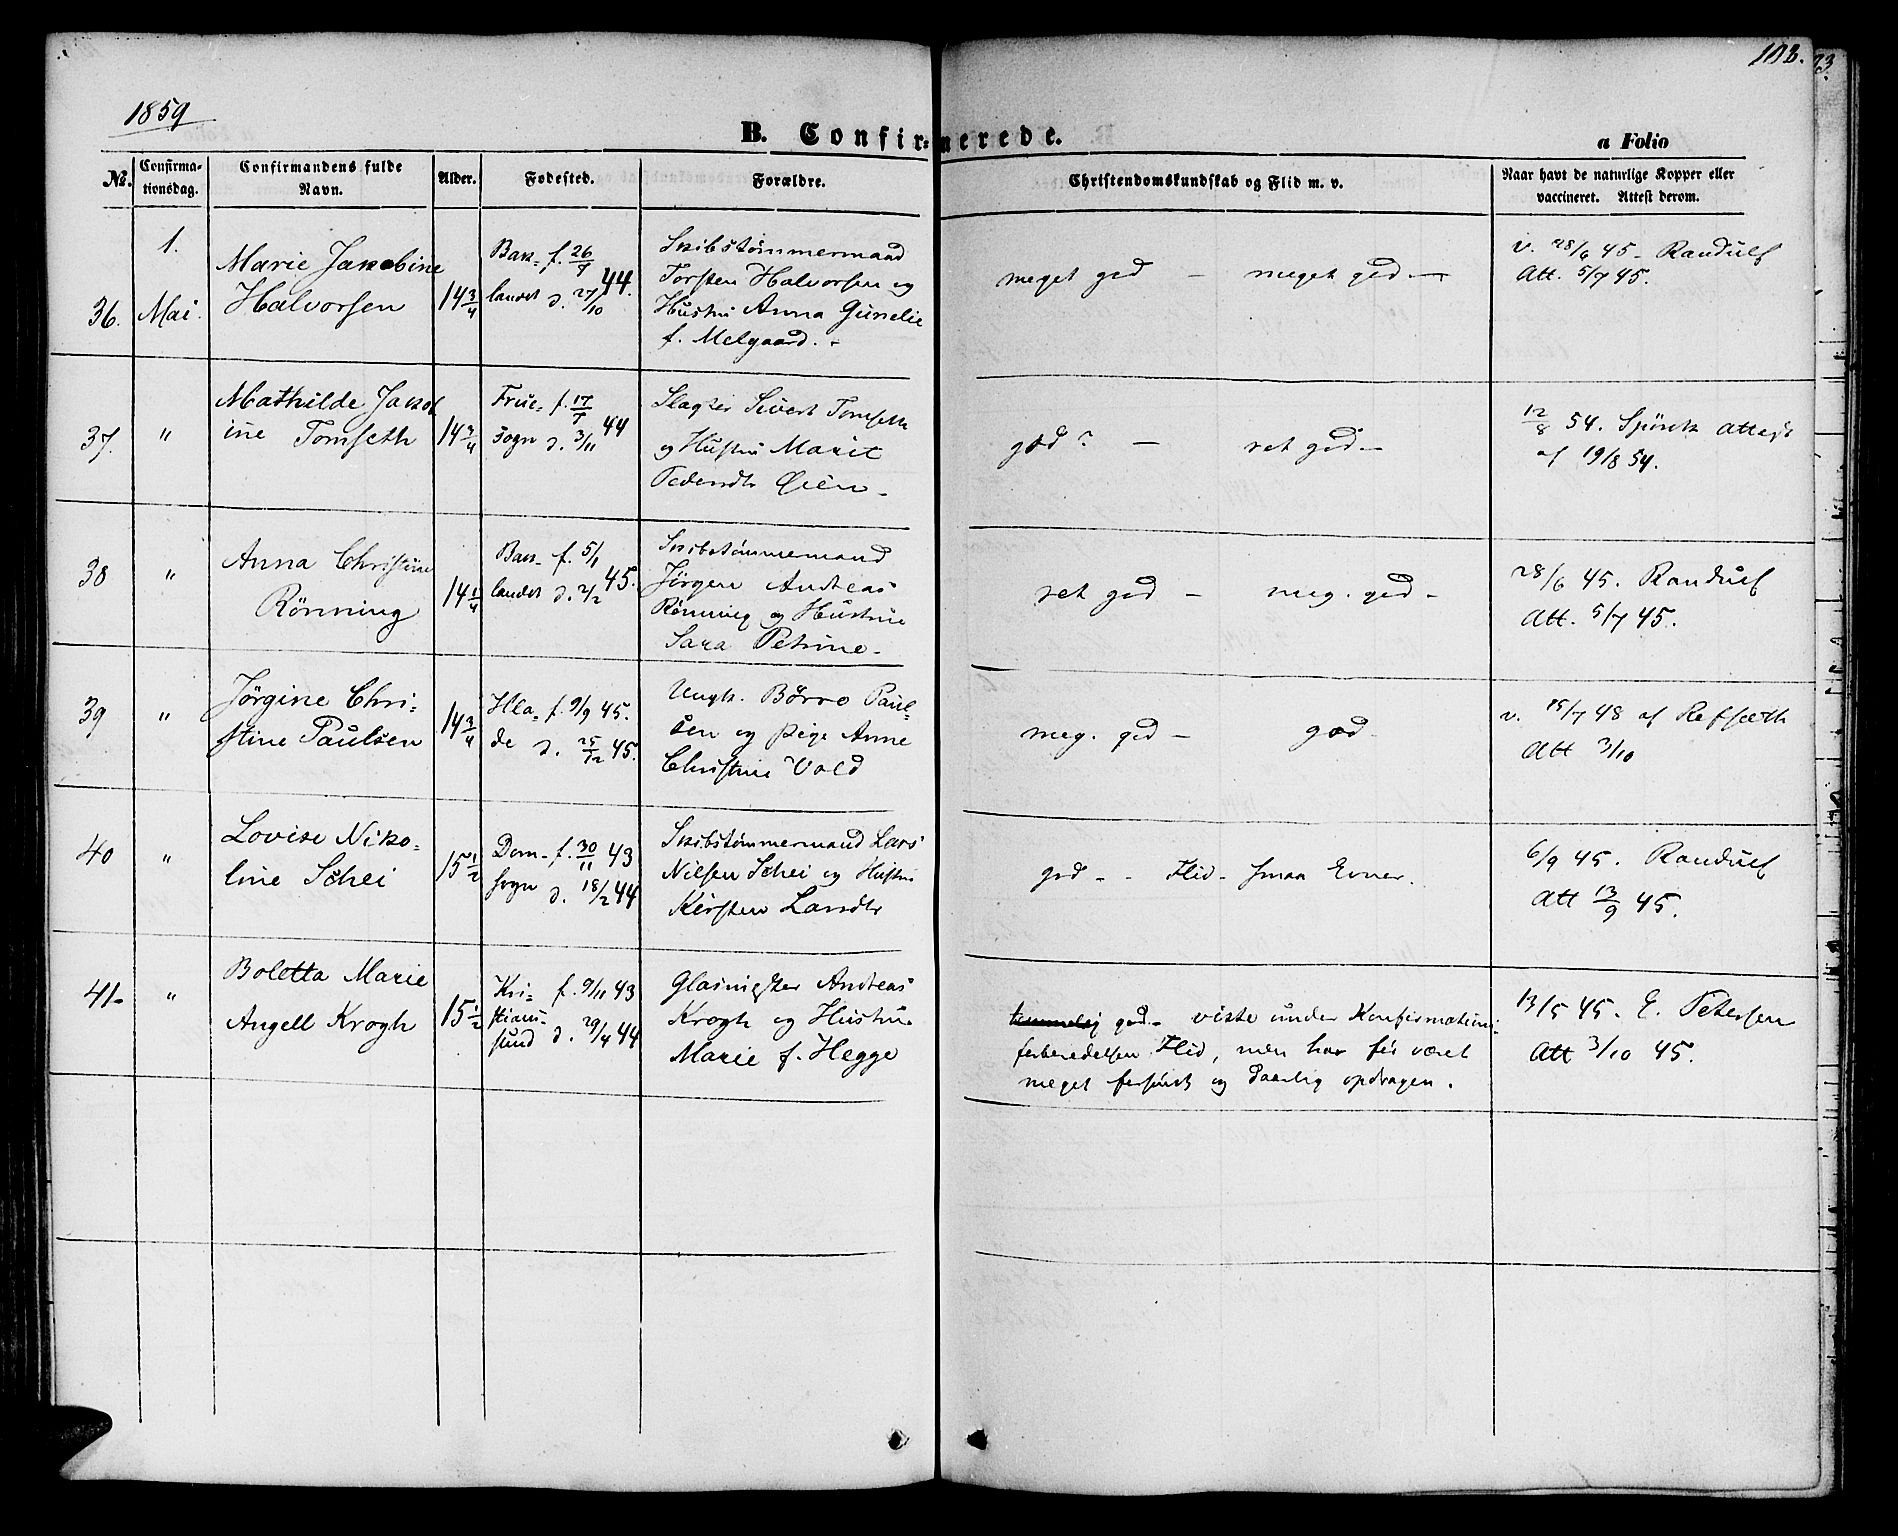 1859
103.
B. Confirmerede.
a Folio
No.
Confirma-
tionsdag.
Confirmandens fulde
Navn.
Alder.
Fødested.
Forældre.
Christendomskundskab og Flid m. v.
Naar havt de naturlige Kopper eller
vaccineret. Attest derom.
36.
1.
Mai.
Marie Jakobine
Halvorsen
14 3/4
Bak- f. 26/7
landet d. 27/10 44.
Skibstømmermand
Torsten Halvorsen og
Hustru Anna Gunelie
f. Melgaard. -
meget god - meget god -
v. 28/6 45 - Randulf
Att. 5/7 45.
37.
"
Mathilde Jakob
ine Tomseth
14 3/4
Frue- f. 17/7
sogn d. 3/11 44
Slagter Sivert Tomseth
og Hustru Marit
Øien -
god? - ret god -
12/8 54. Spörck attest
af 19/8 54.
38
"
Anna Christine
Rönning
14 1/4
Bak- f. 5/1
landet d. 2/2 45.
Skibstømmermand
Jörgen Andreas
Rönning og Hustrue
Sara Petrine -
ret god - meg. god -
28/6 45. Randulf
Att. 5/7 45.
39
"
Jörgine Chri-
stine Paulsen
14 3/4
Hla- f. 9/9 45.
de d. 25/12 45.
Ungk. Börre Paul-
sen og Pige Anne
Christine Vold
meg. god - god -
v. 15/7 48 af Refsæth
Att 3/10
40
"
Lovise Niko-
line Schei
15 1/2
Dom- f. 30/11 43
sogn d. 18/2 44
Skibstømmermand Lars
Nilsen Schei og Hustru
Kirsten Larsdtr
god - - Flid - smaa Evner.
6/9 45. Randulf
Att 13/9 45.
41-
"
Boletta Marie
Angell Krogh
15 1/2
Kri- f. 9/11 43
stians-
sund d. 29/4 44
Glasmester Andreas
Krogh og Hustru
Marie f. Hegge
temmelig god - viste under Konfirmations-
forberedelsen Flid, men har för været
meget forsömt og daarlig opdragen.
13/5 45. E. Petersen
Att 3/10 45.